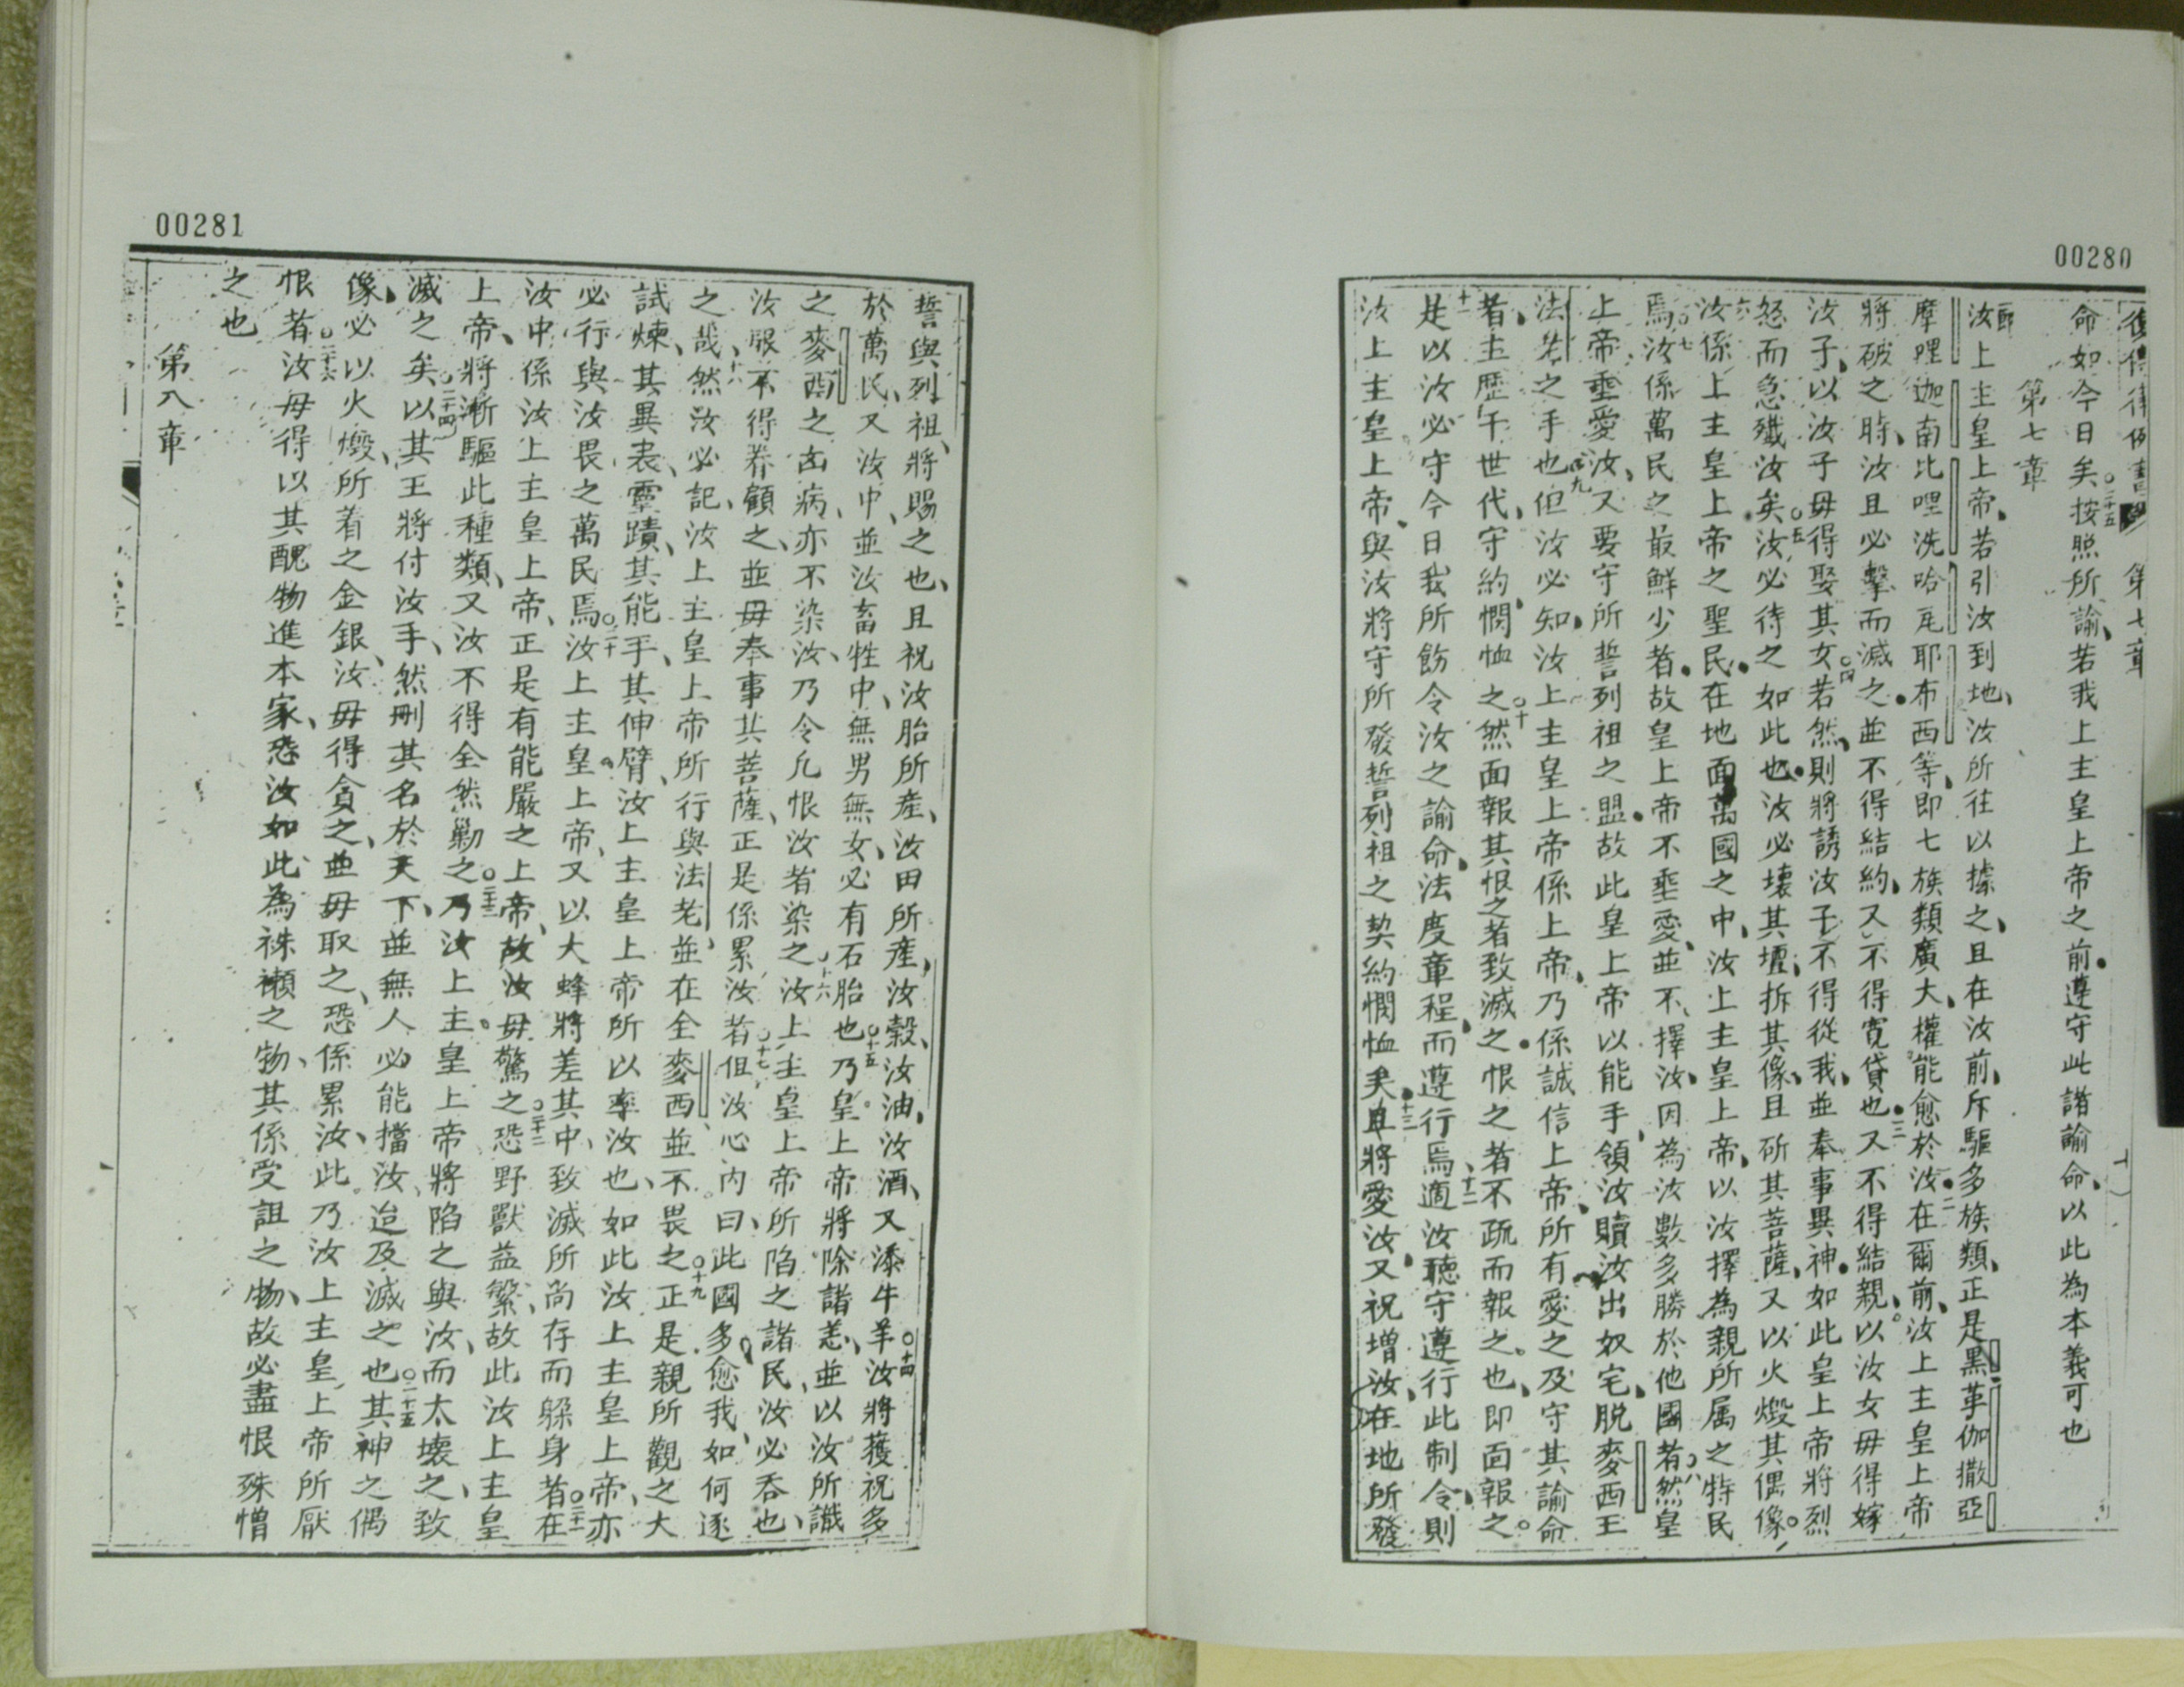 00280
復傳律例書 第七章
命如今日矣二十五按照所諭、若我上主皇上帝之前、遵守此諸諭命、以此為本義可也
第七章
節汝上主皇上帝、若引汝到地、汝所往以據之、且在汝前、斥驅多族類、正是黑革伽撒亞
摩哩迦南比哩洗哈屁耶布西等、即七族類廣大、權能愈於汝、二在爾前、汝上主皇上帝
將破之時、汝且必擊而滅之、並不得結約、又不得寬貸也、三又不得結親、以汝女毋得嫁
汝子、以汝子毋得娶其女、四若然、則將誘汝子、不得從我、並奉事異神、如此皇上帝將烈
怒而急殲汝矣、五汝必待之如此也、汝必壞其壇、拆其像、且斫其菩薩、又以火燬其偶像。
六汝係上主皇上帝之聖民、在地面萬國之中、汝上主皇上帝、以汝擇為親所属之特民
焉、七汝係萬民之最鮮少者、故皇上帝不垂愛、並不擇汝、因為汝數多勝於他國者、八然皇
上帝垂愛汝、又要守所誓列祖之盟、故此皇上帝以能手、領汝贖汝出奴宅、脫麥西王
法老之手也、九但汝必知、汝上主皇上帝係上帝、乃係誠信上帝、所有愛之及守其諭命
者、主歷千世代、守約、憫恤之、十然面報其恨之者致滅之、恨之者不疏而報之也、即面報之。
十一是以汝必守今日我所飭令汝之諭命、法度章程、而遵行焉、十二適汝聽守遵行此制令、則
汝上主皇上帝、與汝將守所發誓列祖之契約憫恤矣、十三且將愛汝、又祝增汝、在地所發
00281
誓與列祖、將賜之也、且祝汝胎所產、汝田所產、汝穀、汝油、汝酒、又添牛羊、十四汝將獲祝多
於萬民、又汝中、並汝畜牲中、無男無女、必有石胎也、十五乃皇上帝將除諸恙、並以汝所識
之麥西之凶病、亦不染汝、乃令凡恨汝者染之、十六汝上主皇上帝所陷之諸民、汝必吞也、
汝眼不得養顧之、並毋奉事其菩薩、正是係累汝者、十七但汝心內曰、此國多愈我、如何逐
之哉、十八然汝必記、汝上主皇上帝所行與法老、並在全麥西、並不畏之、十九正是親所觀之大
試煉、其異表、靈蹟、其能手、其伸臂、汝上主皇上帝所以率汝也、如此汝上主皇上帝、亦
必行與汝畏之萬民焉、二十汝上主皇上帝、又以大蜂將差其中、致滅所尚存而躱身者、二十一在
汝中係汝上主皇上帝、正是有能嚴之上帝、故汝毋驚之、二十二恐野獸益繁、故此汝上主皇
上帝、將漸驅此種類、又汝不得全然勦之、二十三乃汝上主皇上帝將陷之與汝、而太壞之、致
滅之矣、二十四以其王將付汝手、然刪其名於天下、並無人必能擋汝、迨及滅之也、二十五其神之偶
像、必以火燬、所着之金銀、汝毋得貪之、並毋取之、恐係累汝、此乃汝上主皇上帝所厭
恨者、二十六汝毋得以其醜物進本家、恐汝如此為祩襰之物、其係受詛之物、故必盡恨殊憎
之也
第八章